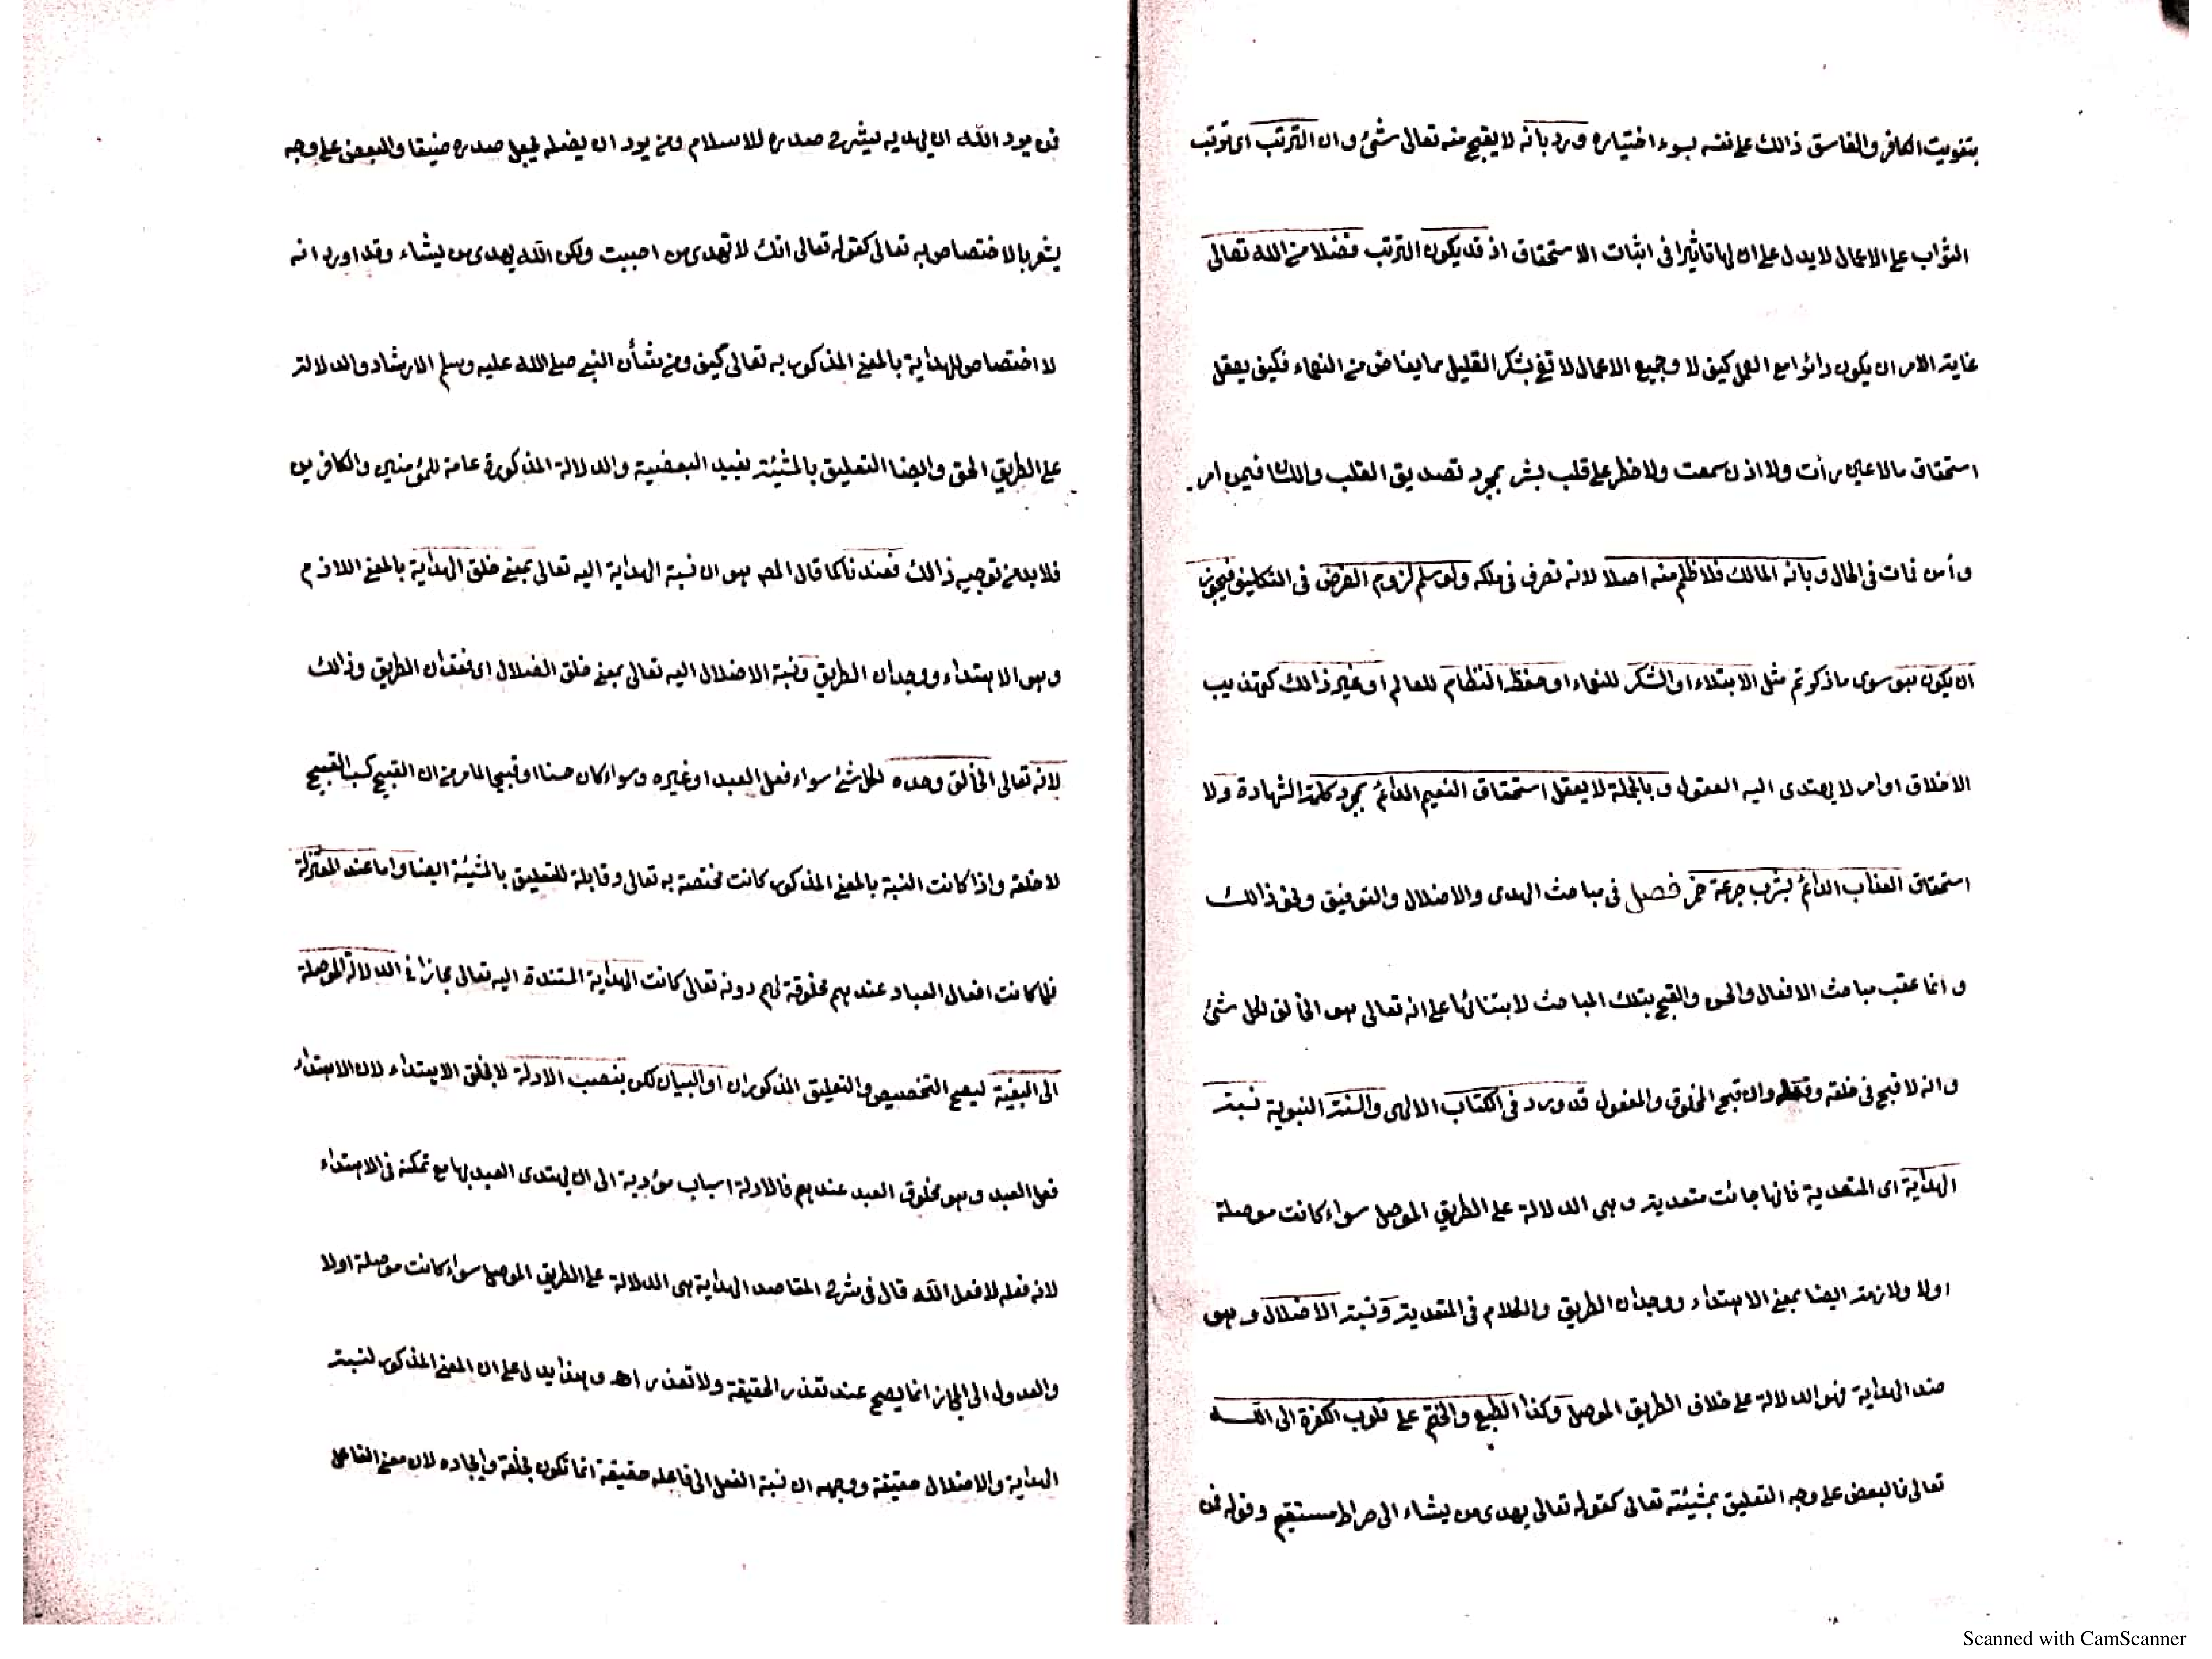 بتفويت الكافر والفاسق ذالك على نفسه بسوء اختياره ورد بانه لا يقبح منه تعالى شئ وان الترتب اى ترتب
الثواب على الاعمال لا يدل على ان لها تاثيرا فى اثبات الاستحقاق اذ قد يكون الترتب فضلا من الله تعالى
غاية الامر ان يكون دائرا مع العمل كيف لا وجميع الاعمال لا تفى بشكر القليل مما يفاض من النعماء فكيف يعقل
استحقاق ما لا عين رأت ولا اذن سمعت ولا خطر على قلب بشر بمجرد تصديق القلب واللسان فيمن امر
وأمن فمات فى الحال وبانه المالك فلا ظلم منه اصلا لانه تصرف فى ملكه ولو سلم لزوم الغرض فى التكاليف فيجوز
ان يكون هو سوى ما ذكرتم مثل الابتلاء او الشكر للنعماء او حفظ النظام للعالم او غير ذالك كتهذيب
الاخلاق او امر لا يهتدى اليه العقول وبالجملة لا يعقل استحقاق النعيم الدائم بمجرد كلمة الشهادة ولا
استحقاق العذاب الدائم بشرب جرعة خمر فصل فى مباحث الهدى والاضلال والتوفيق ونحو ذالك
وانما عقب مباحث الافعال والحسن والقبح بتلك المباحث لابتنائها على انه تعالى هو الخالق لكل شئ
وانه لا قبح فى خلقه وفعله وان قبح المخلوق والمفعول قد ورد فى الكتاب الالهى والسنة النبوية نسبة
الهداية اى المتعدية فانها جائت متعدية وهى الدلالة على الطريق الموصل سواء كانت موصلة
اولا ولازمة ايضا بمعنى الاهتداء ووجدان الطريق والكلام فى المتعدية ونسبة الاضلال وهو
ضد الهداية فهو الدلالة على خلاف الطريق الموصل وكذا الطبع والختم على قلوب الكفرة الى الله
تعالى فالبعض على وجه التعليق بمشيئته تعالى كقوله تعالى يهدى من يشاء الى صراط مستقيم وقوله فمن
فمن يرد الله ان يهديه يشرح صدره للاسلام ومن يرد ان يضله يجعل صدره ضيقا والبعض على وجه
يشعر بالاختصاص به تعالى كقوله تعالى انك لا تهدى من احببت ولكن الله يهدى من يشاء وقد اورد انه
لا اختصاص للهداية بالمعنى المذكور به تعالى كيف ومن شأن النبى صلى الله عليه وسلم الارشاد والدلالة
على الطريق الحق وايضا التعليق بالمشيئة يفيد البعضية والدلالة المذكورة عامة للمؤمنين والكافرين
فلا بد من توجيه ذالك فعندنا كما قال المص هو ان نسبة الهداية اليه تعالى بمعنى خلق الهداية بالمعنى اللازم
وهو الاهتداء ووجدان الطريق ونسبة الاضلال اليه تعالى بمعنى خلق الضلال اى فقدان الطريق وذالك
لانه تعالى الخالق وحده لكل شئ سواء فعل العبد او غيره وسواء كان حسنا او قبيحا لما مر من ان القبيح كسب القبيح
لا خلقه واذا كانت النسبة بالمعنى المذكور كانت مختصة به تعالى وقابلة للتعليق بالمشيئة ايضا واما عند المعتزلة
فلما كانت افعال العباد عندهم مخلوقة لهم دونه تعالى كانت الهداية المستندة اليه تعالى مجازا فى الدلالة الموصلة
الى البغية ليصح التخصيص والتعليق المذكوران او البيان لكن بنصب الادلة لا بخلق الاهتداء لان الاهتداء
فعل العبد وهو مخلوق العبد عندهم فالادلة اسباب مؤدية الى ان يهتدى العبد بها مع تمكنه فى الاهتداء
لانه فعله لا فعل الله قال فى شرح المقاصد الهداية هى الدلالة على الطريق الموصل سواء كانت موصلة اولا
والعدول الى المجاز انما يصح عند تعذر الحقيقة ولا تعذر اهـ وهذا يدل على ان المعنى المذكور لنسبة
الهداية والاضلال حقيقة ووجهه ان نسبة الفعل الى فاعله حقيقة انما تكون بخلقه وايجاده لان معنى الفاعل
Scanned with CamScanner